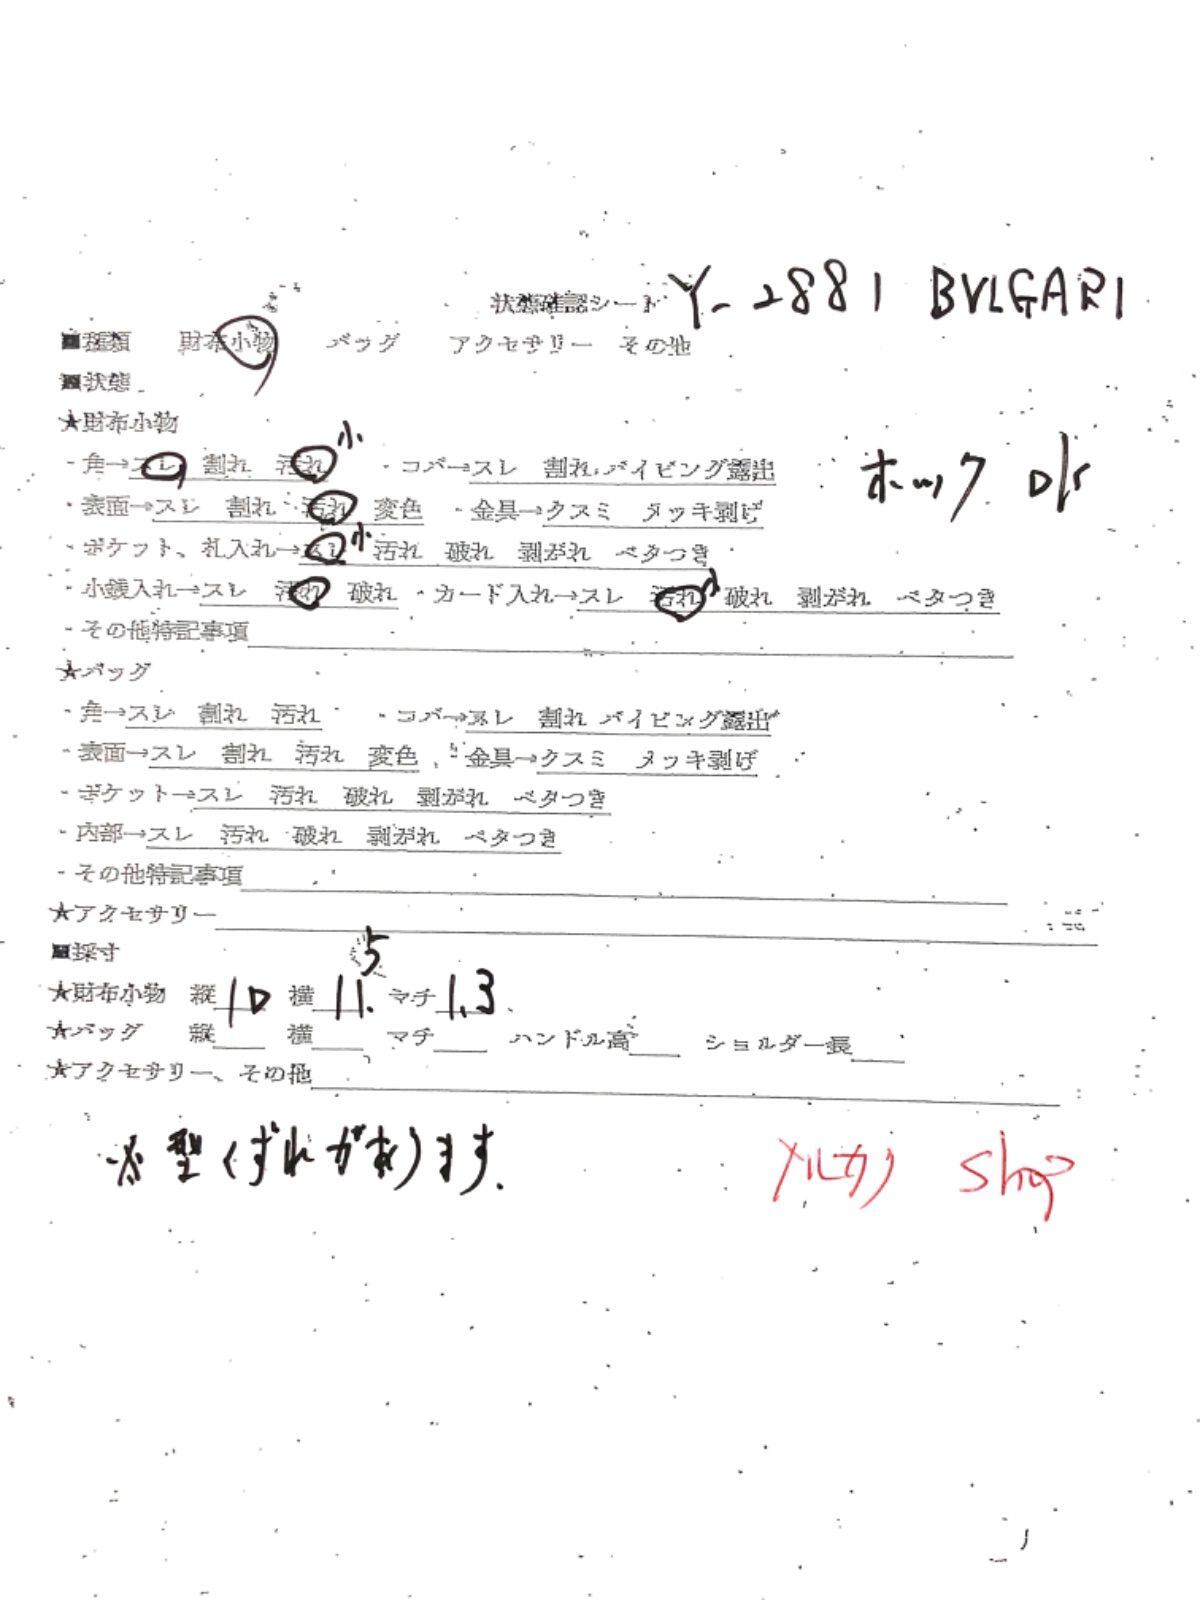 状態確認シート Y-2881 BVLGARI
■種類 財布小物 バッグ アクセサリー その他
■状態
★財布小物
・角→スレ 割れ 汚れ 小 ・コバ→スレ 割れ パイピング露出
ホック ok
・表面→スレ 割れ 汚れ 変色 ・金具→クスミ メッキ剥げ
・ポケット、札入れ→スレ 小 汚れ 破れ 剥がれ ベタつき
・小銭入れ→スレ 汚れ 破れ ・カード入れ→スレ 汚れ 小 破れ 剥がれ ベタつき
・その他特記事項
★バッグ
・角→スレ 割れ 汚れ ・コバ→スレ 割れ パイピング露出
・表面→スレ 割れ 汚れ 変色 ・金具→クスミ メッキ剥げ
・ポケット→スレ 汚れ 破れ 剥がれ ベタつき
・内部→スレ 汚れ 破れ 剥がれ ベタつき
・その他特記事項
★アクセサリー
■採寸
★財布小物 縦 10 横 11.5 マチ 1.3
★バッグ 縦 横 マチ ハンドル高 ショルダー長
★アクセサリー、その他
※型くずれがあります.
メルカリ Shop